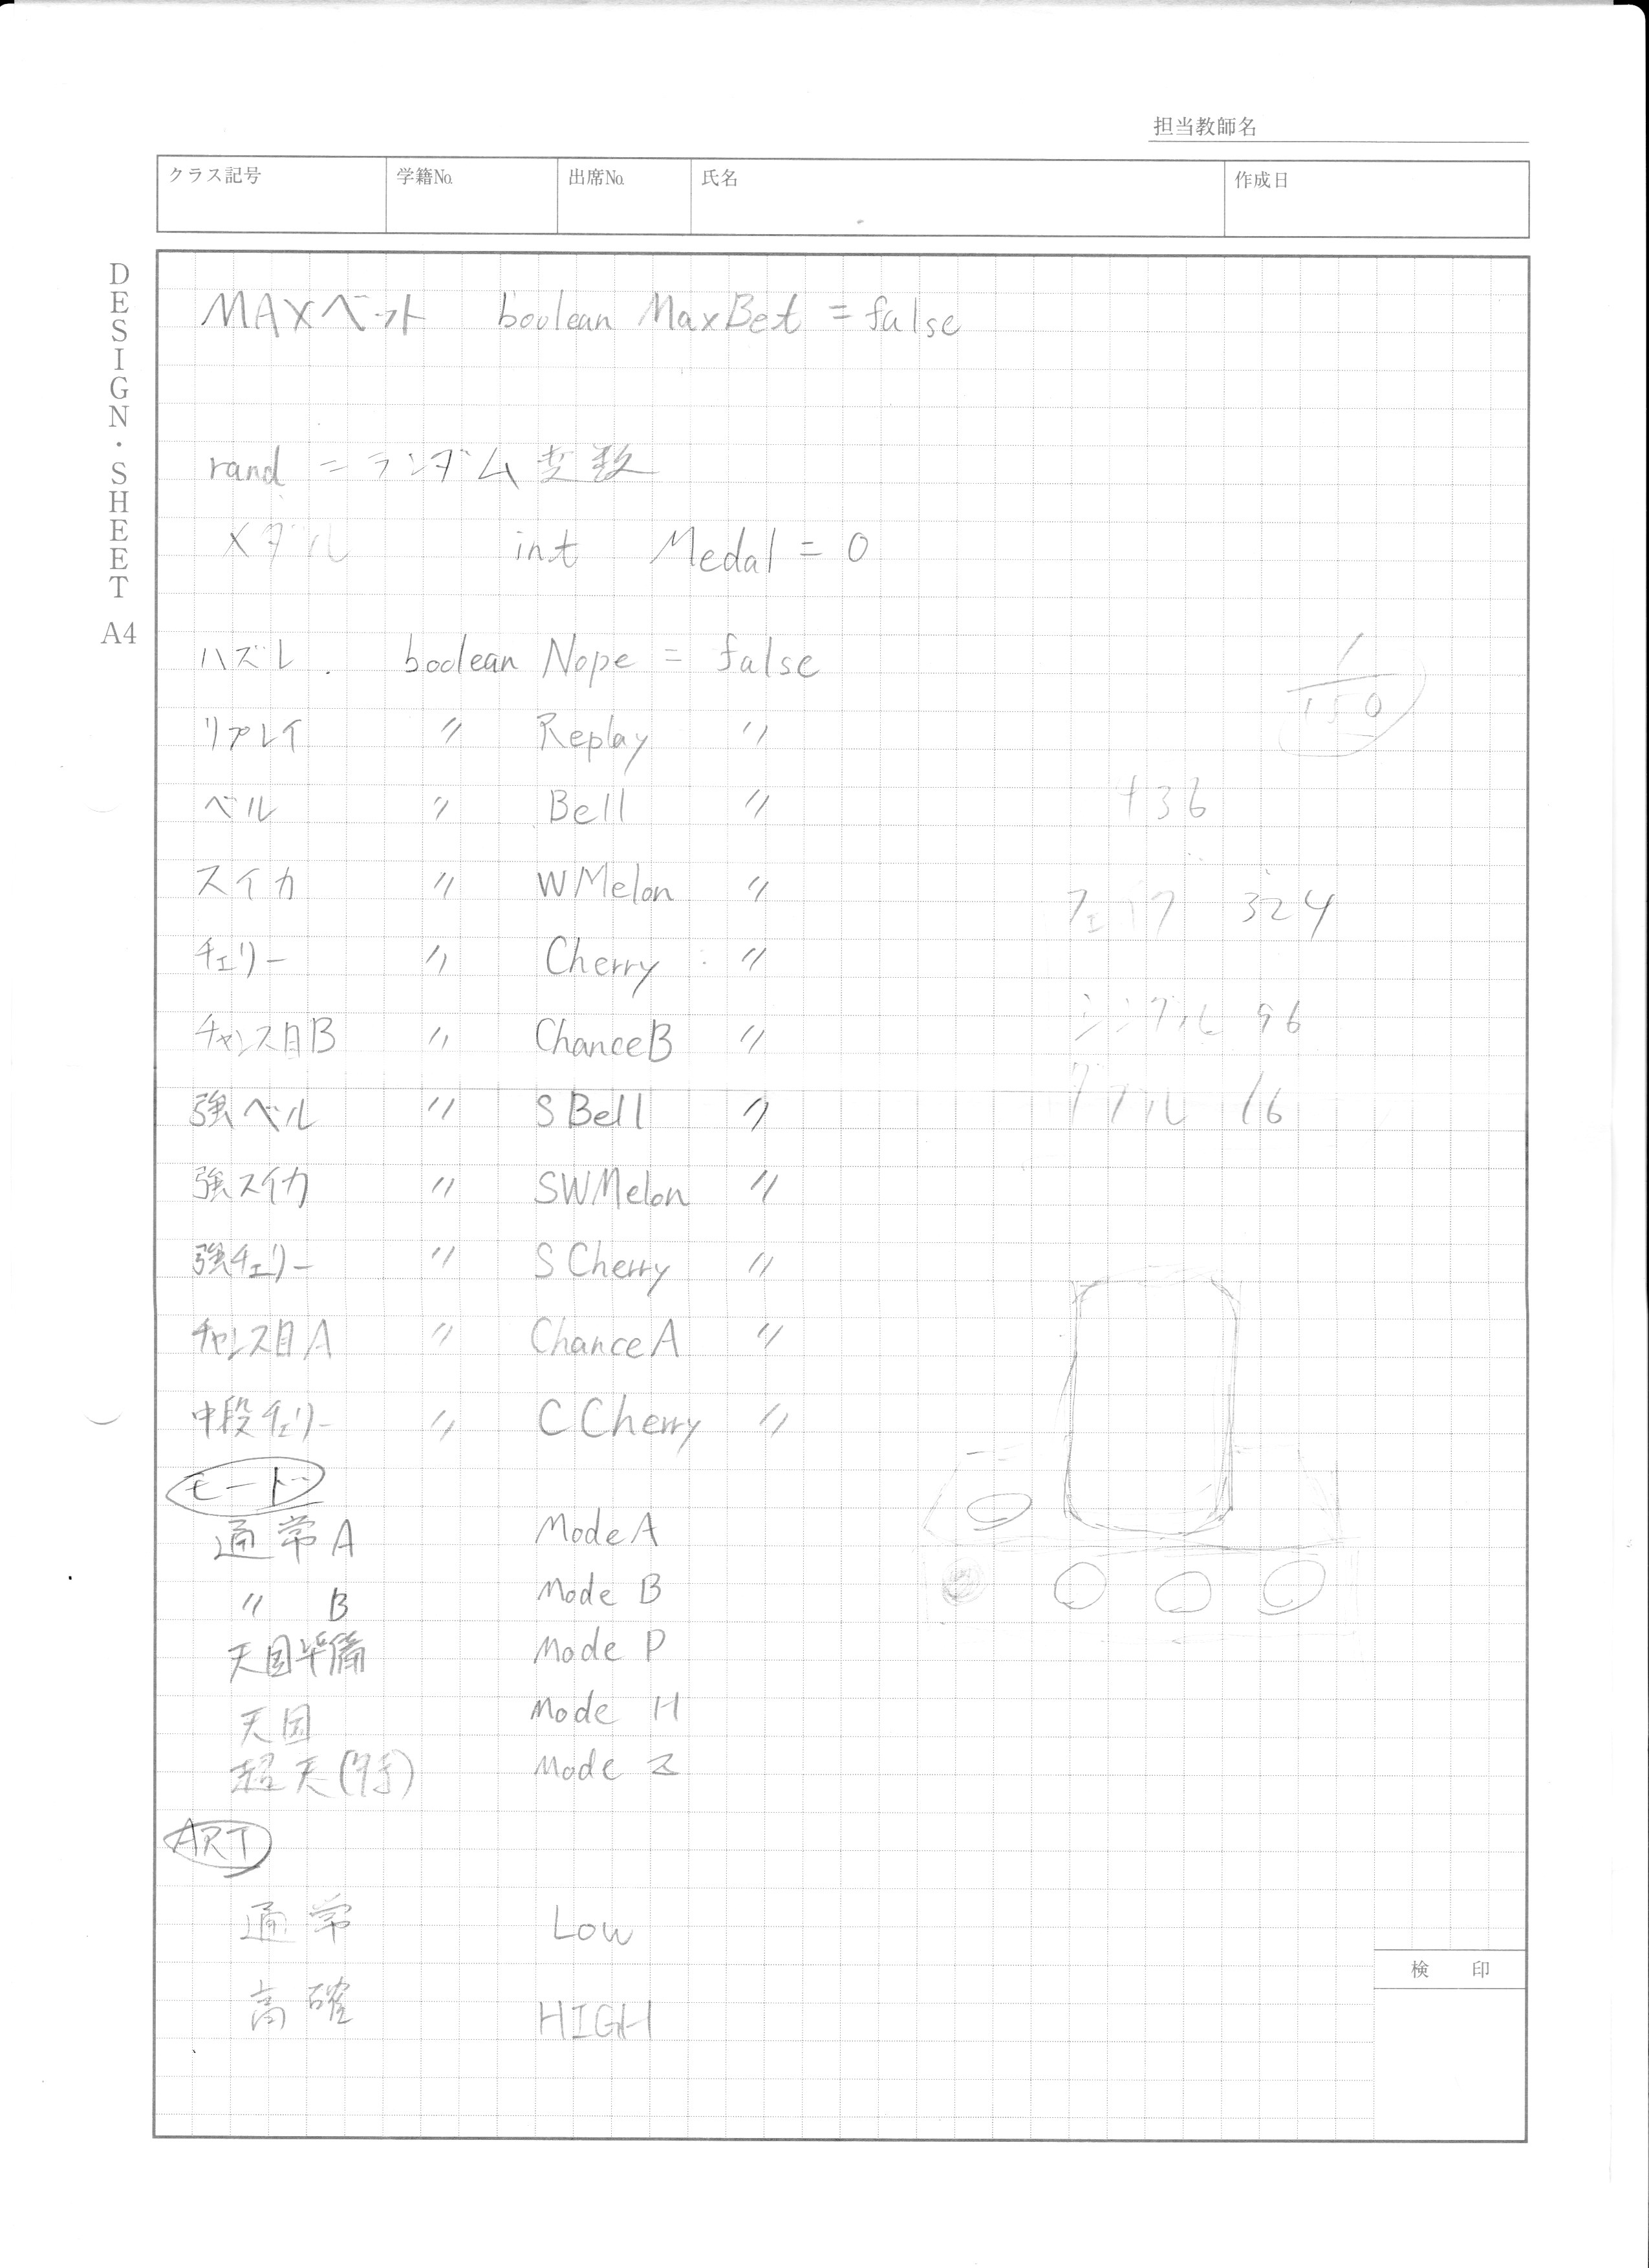 担当教師名
クラス記号 学籍No. 出席No. 氏名 作成日
DESIGN・SHEET A4
MAXベット boolean MaxBet = false
rand = ランダム変数
メダル int Medal = 0
ハズレ boolean Nope = false
リプレイ 〃 Replay 〃
ベル 〃 Bell 〃
スイカ 〃 WMelon 〃
チェリー 〃 Cherry 〃
チャンス目B 〃 ChanceB 〃
強ベル 〃 SBell 〃
強スイカ 〃 SWMelon 〃
強チェリー 〃 SCherry 〃
チャンス目A 〃 ChanceA 〃
中段チェリー 〃 CCherry 〃
モード
通常A ModeA
〃 B Mode B
天国準備 Mode P
天国 Mode H
超天(特) Mode Z
ART
通常 Low
高確 HIGH
1/150
+36
324
シングル 96
ダブル 16
検印